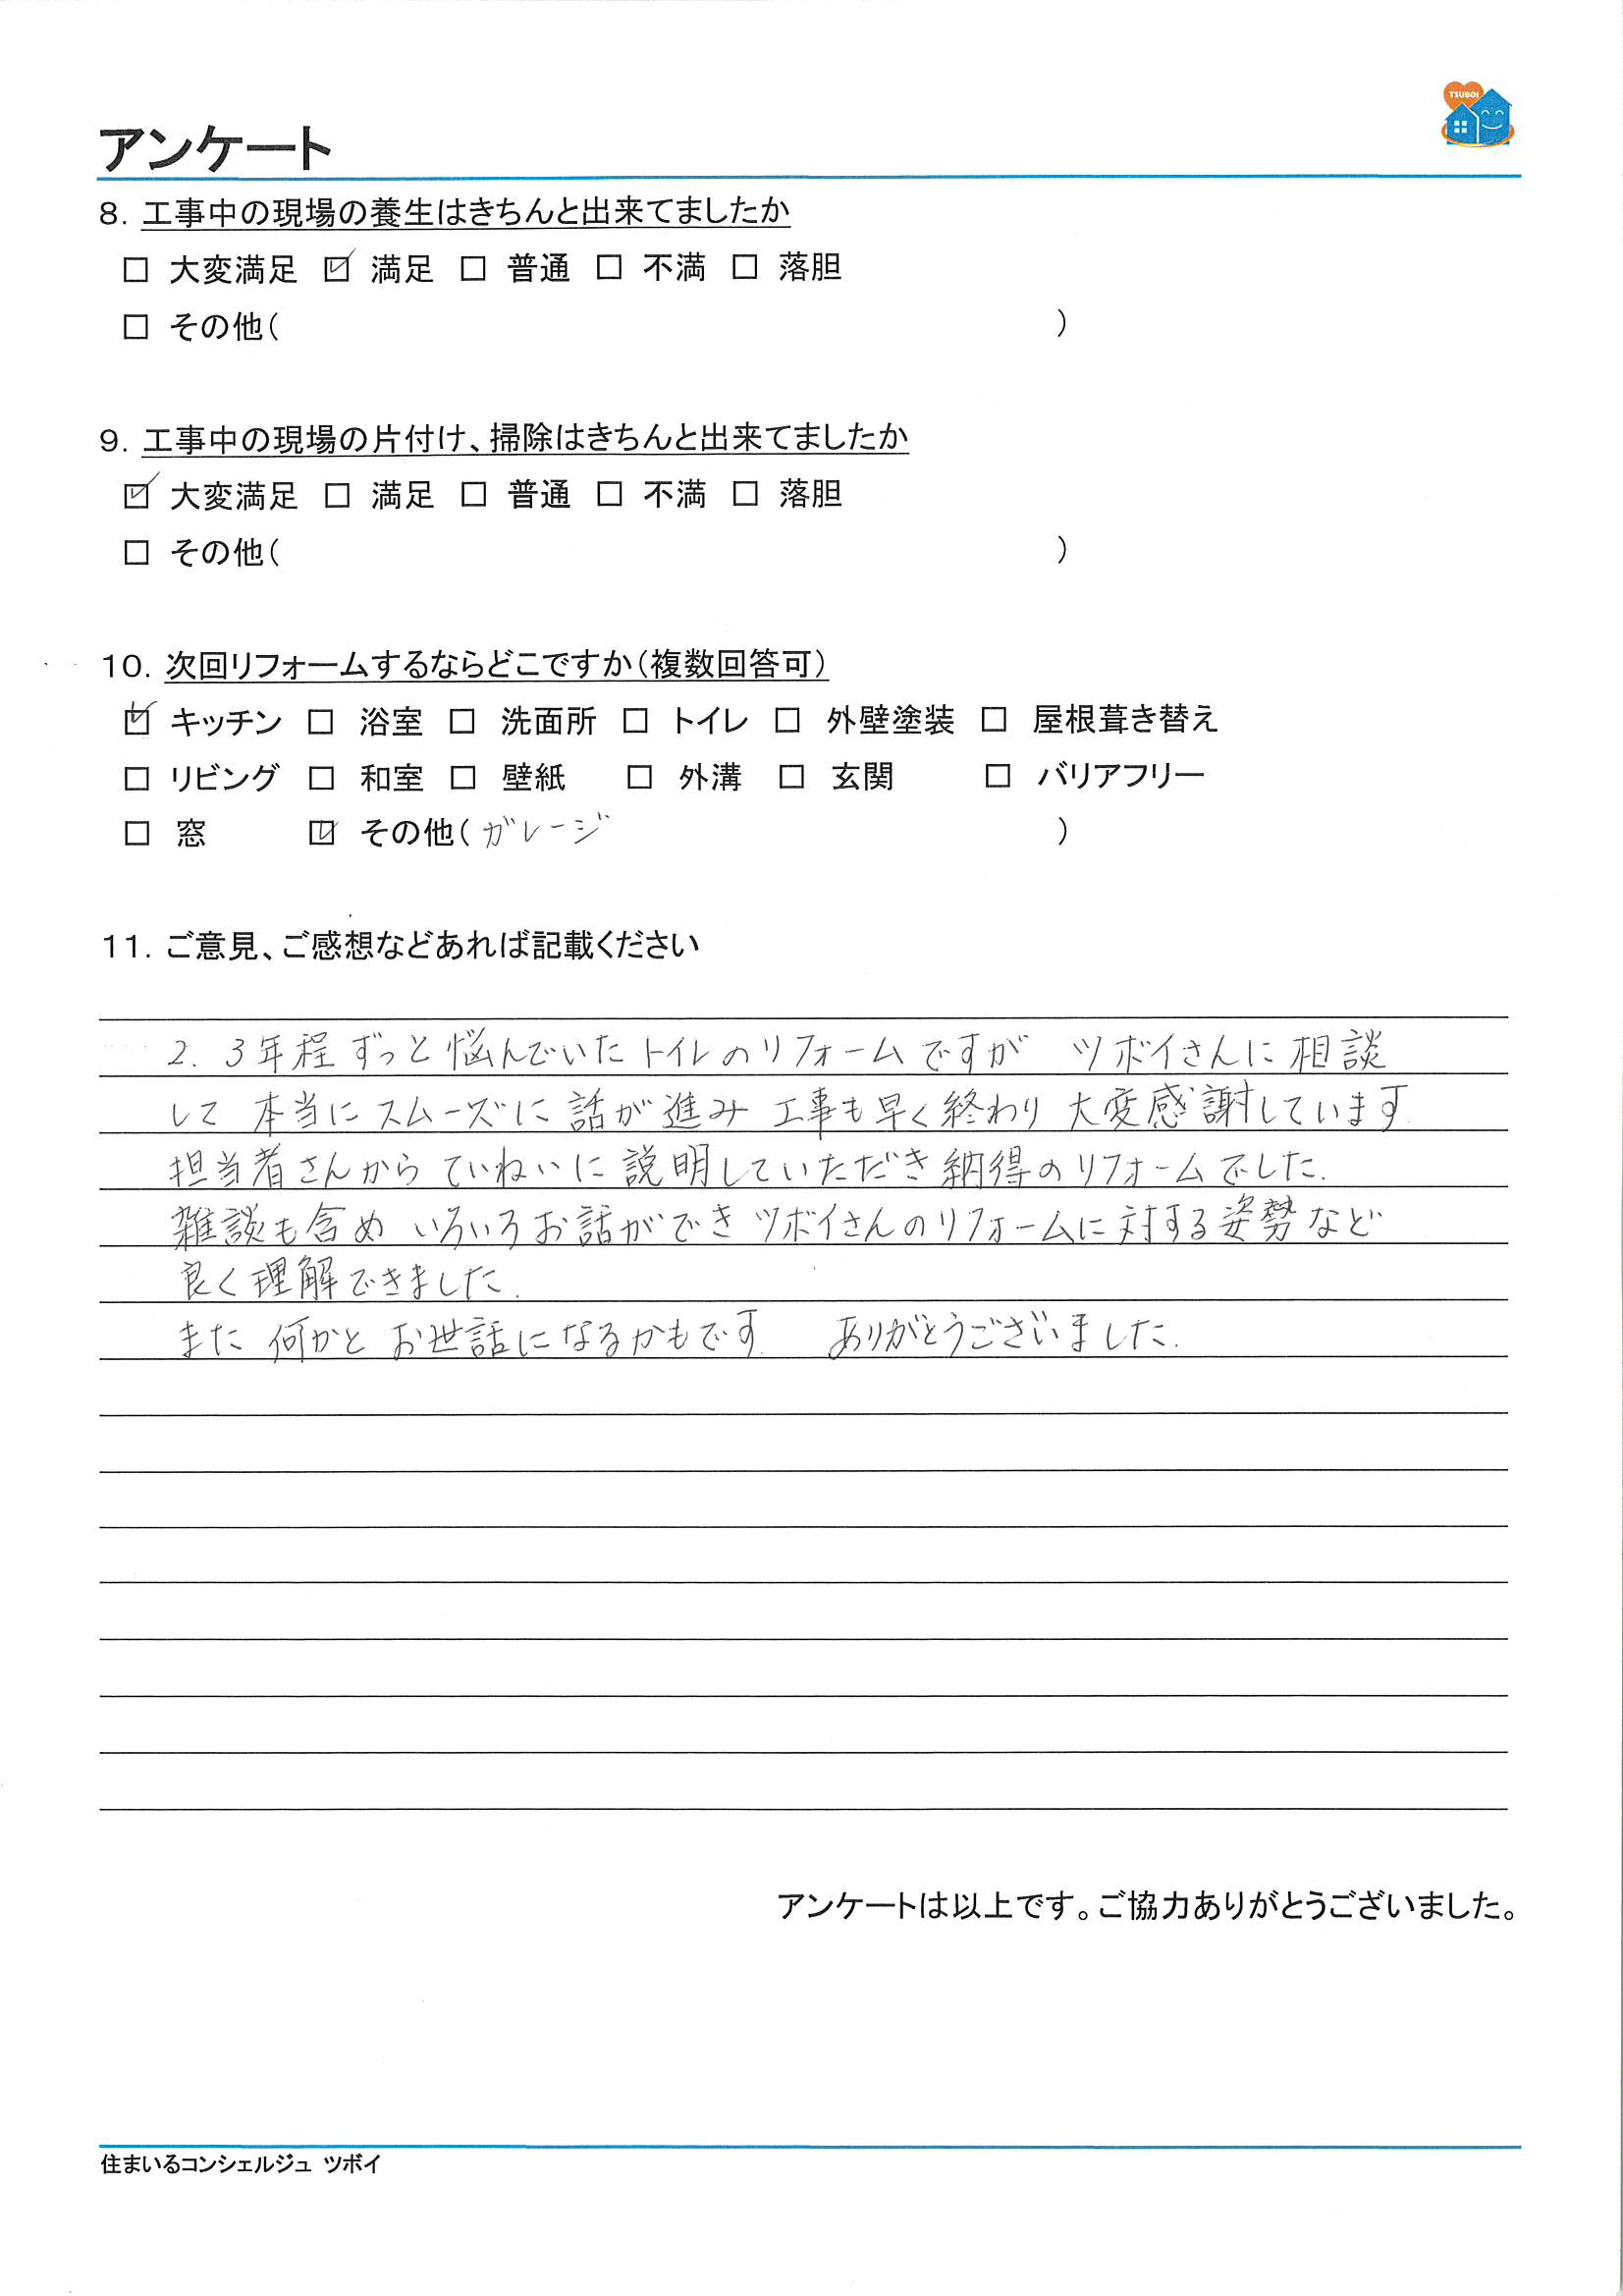 TSUBOI
アンケート
8. 工事中の現場の養生はきちんと出来てましたか
□ 大変満足 ☑ 満足 □ 普通 □ 不満 □ 落胆
□ その他( )
9. 工事中の現場の片付け、掃除はきちんと出来てましたか
☑ 大変満足 □ 満足 □ 普通 □ 不満 □ 落胆
□ その他( )
10. 次回リフォームするならどこですか(複数回答可)
☑ キッチン □ 浴室 □ 洗面所 □ トイレ □ 外壁塗装 □ 屋根葺き替え
□ リビング □ 和室 □ 壁紙 □ 外溝 □ 玄関 □ バリアフリー
□ 窓 ☑ その他(ガレージ )
11. ご意見、ご感想などあれば記載ください
2. 3年程ずっと悩んでいたトイレのリフォームですが ツボイさんに相談
して 本当に スムーズに 話が進み 工事も早く終わり 大変感謝しています.
担当者さんから ていねいに説明していただき 納得のリフォームでした.
雑談も含め いろいろお話ができ ツボイさんのリフォームに対する姿勢など
良く理解できました.
また 何かと お世話になるかもです. ありがとうございました.
アンケートは以上です。ご協力ありがとうございました。
住まいるコンシェルジュ ツボイ